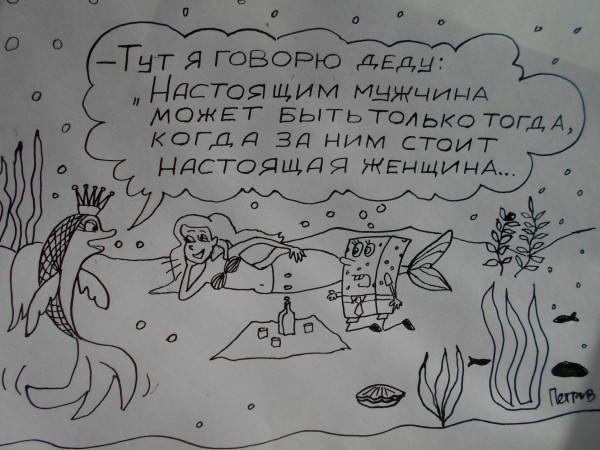 –Тут я говорю деду:
„Настоящим мужчина
может быть только тогда,
когда за ним стоит
настоящая женщина...
Петров